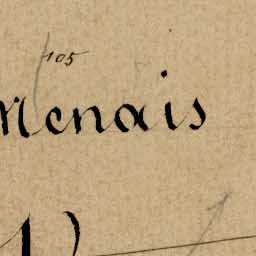 105
Menais